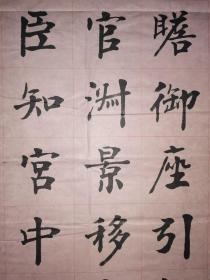 瞻御座引
官淑景移
臣知宮中